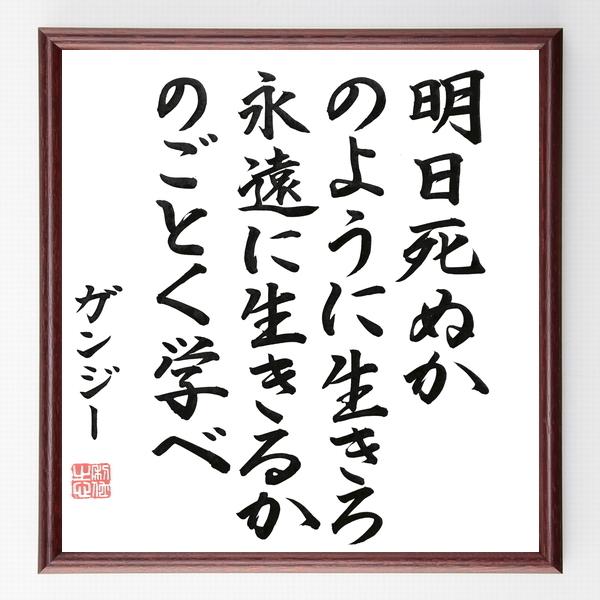 明日死ぬか
のように生きろ
永遠に生きるか
のごとく学べ
ガンジー